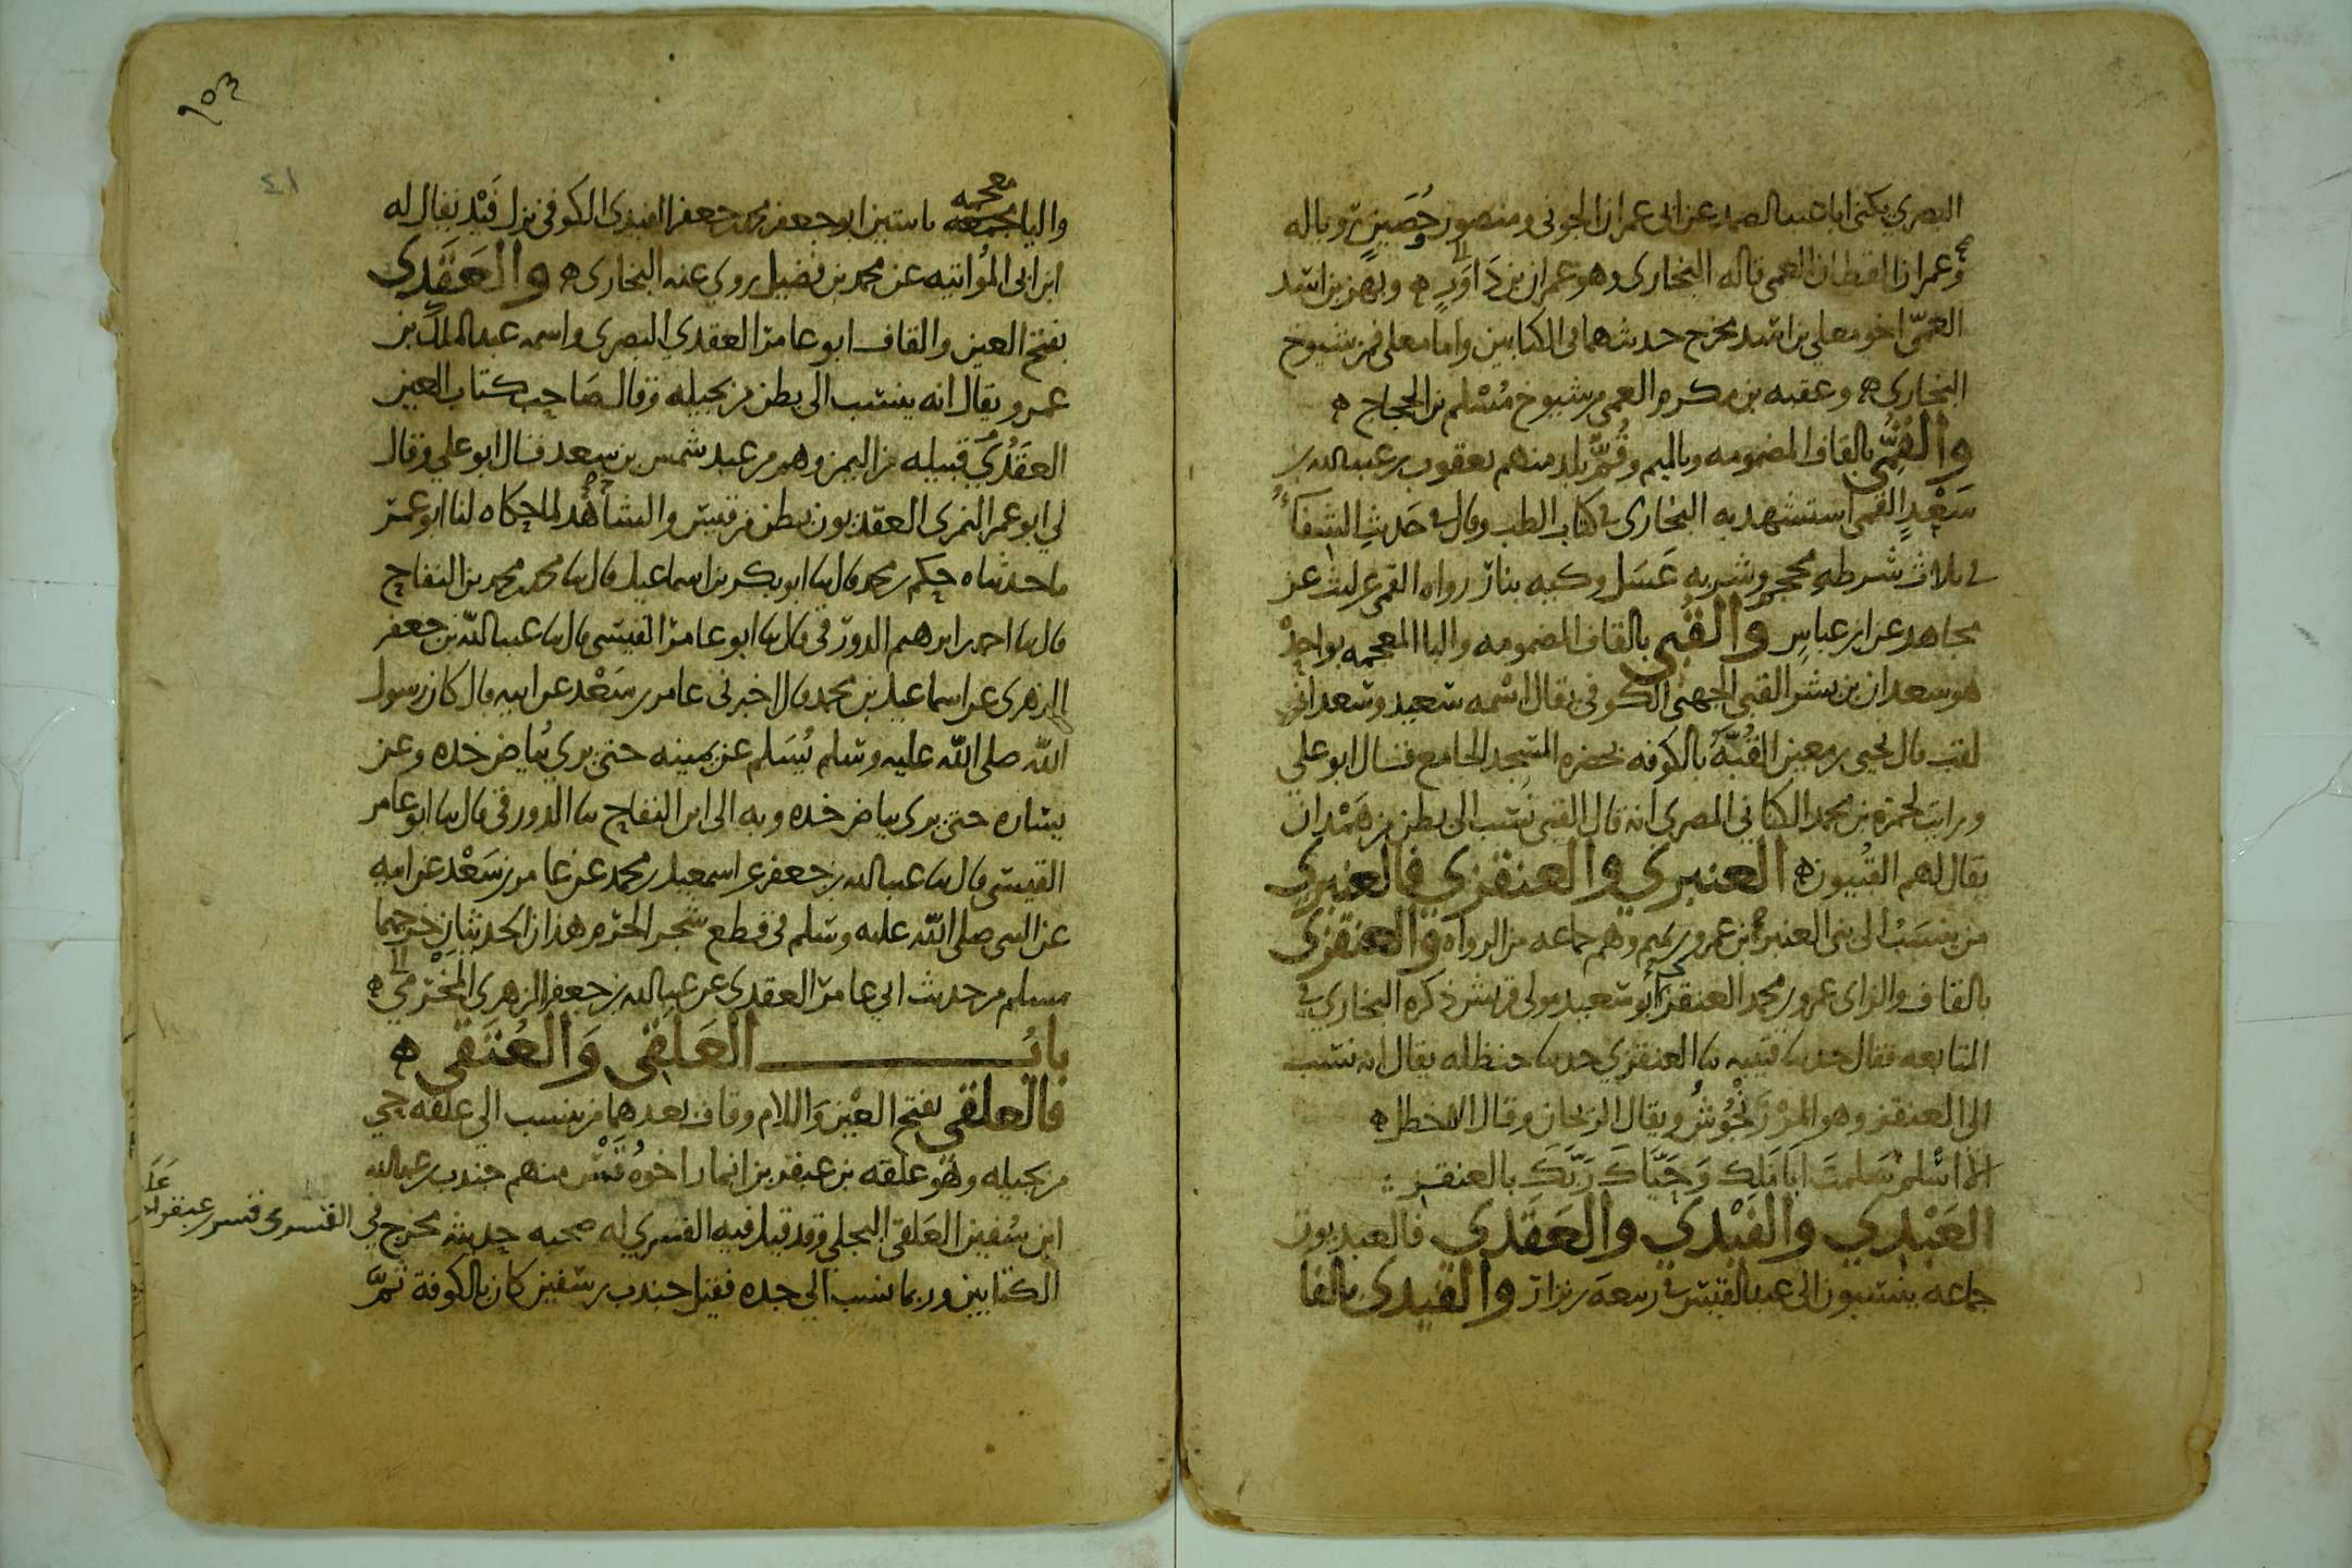 البصري يكنى ابا عبد الصمد عن ابي عمران الجوني ومنصور وحصين رويا له
وعمران القطان العمي قاله البخاري وهو عمران بن داور ه وبهز بن اسد
العمي اخو معلى بن اسد مخرج حديثهما في الكتابين واما معلى فمن شيوخ
البخاري ه وعقبه بن مكرم العمي من شيوخ مسلم بن الحجاج ه
والقُمِّي بالقاف المضمومه وبالميم وقُمّ بلد منهم يعقوب بن عبد الله بن
سَعْدٍ القمي استشهد به البخاري في كتاب الطب وقال في حَديثِ الشفآء
في ثلاث شرطه محجم وشربه عَسَل وكيه بنار رواه القمي عن ليث عن
مجاهد عن ابن عباس والقُبي بالقاف المضمومه والبا المعجمه بواحدة
هو سعدان بن بشر القبي الجهني الكوفي يقال اسمه سعيد وسعدان
لقب قال يحيى بن معين القُبَّةُ بالكوفه بحضره المسجد الجامع قال ابو علي
ورايت لحمزة بن محمد الكناني المصري انه قال القبي نسب الى بطن من هَمْدان
يقال لهم القُبيون ه العنبري والعنقزي فالعنبري
من ينسَبُ الى بني العنبر بن عمرو بن تميم وهم جماعه من الرواه والعنقزي
بالقاف والزاى عمرو بن محمد العنقزي ابو سعيد مولى قريش ذكره البخاري في
المتابعه فقال حدثنا قتيبه نا العنقزي حدثنا حنظله يقال انه نسب
الى العنقز وهو المرْزَنْجُوشُ ويقال الريحان وقال الاخطل ه
الا اسْلم سَلمتَ ابا مَلِك وَحَيَّاكَ رَبّكَ بالعنقز :
العَبْدي والفَيْدي والعَقَدي فالعبديون
جماعه ينتسبون الى عبد القيس في ربيعة بن نزار والفيدي بالفا
١٥٣
٤١
واليا معجمه باثنتين ابو جعفر محمد بن جعفر الفيدي الكوفي نزل فَيْد يقال له
ابن ابي المُواتيه عن محمد بن فضيل روى عنه البخاري ه والعَقَدِي
بفتح العين والقاف ابو عامر العقدي البصري واسمه عبد الملك بن
عمرو يقال انه ينسب الى بطن من بجيله وقال صَاحِب كتاب العين
العقَدُيّ قبيله من اليمن وهم من عبد شمس بن سعد قال ابو علي وقال
لي ابو عمر النمري العقديون بطن من قيس والشاهد لما حكاه لنا ابو عمر
ما حدثناه حكم بن محمد قال نا ابو بكر بن اسماعيل قال نا محمد بن محمد بن النفاح
قال نا احمد بن ابرهيم الدورقي قال نا ابو عامر القيسي قال نا عبد الله بن جعفر
الزهري عن اسماعيل بن محمد قال اخبرني عامر بن سَعْد عن ابيه قال كان رسول
الله صلى الله عليه وسلم يُسَلم عن يمينه حتى يرى بياض خده وعن
يساره حتى يرى بياض خده وبه الى ابن النفاح نا الدورقي قال نا ابو عامر
القيسي قال نا عبد الله بن جعفر عن اسمعيل بن محمد عن عامر بن سَعْد عن ابيه
عن النبي صلى الله عليه وسلم في قطع شجر الحرم هذان الحديثان خرجهما
مسلم من حديث ابي عامر العقدي عن عبد الله بن جعفر الزهري المَخْرَمي ه
بابُ العَلَقي وَالعُتَقي ه
فالعلقي بفتح العين وَاللام وقاف بعدهما من ينسب الى علقه حي
من بجيله وهو علقه بن عبقر بن انمار اخوه قَسْر منهم جندب بن عبد الله
ابن سُفين العَلَقي البجلي وقد قيل فيه القسري له صحبه حديثه مخرج في
الكتابين وربما نسب الى جده فقيل جندب بن سفين كان بالكوفة ثمَّ
القسري قسر بن عبقر